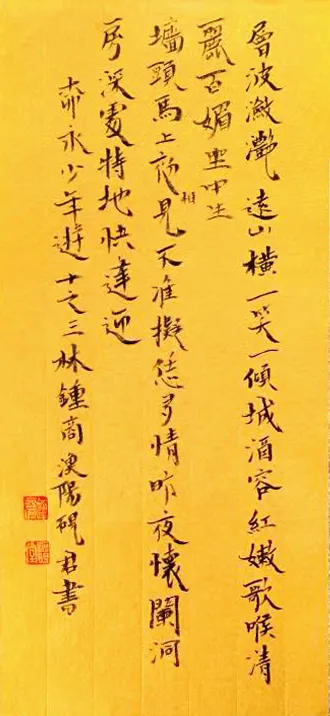 層波瀲灩遠山橫一笑一傾城酒容紅嫩歌喉清
麗百媚坐中生
墻頭馬上初相見不准擬恁多情昨夜懷闌洞
房深處特地快逢迎
永少年遊十之三林鍾商陽硯君書